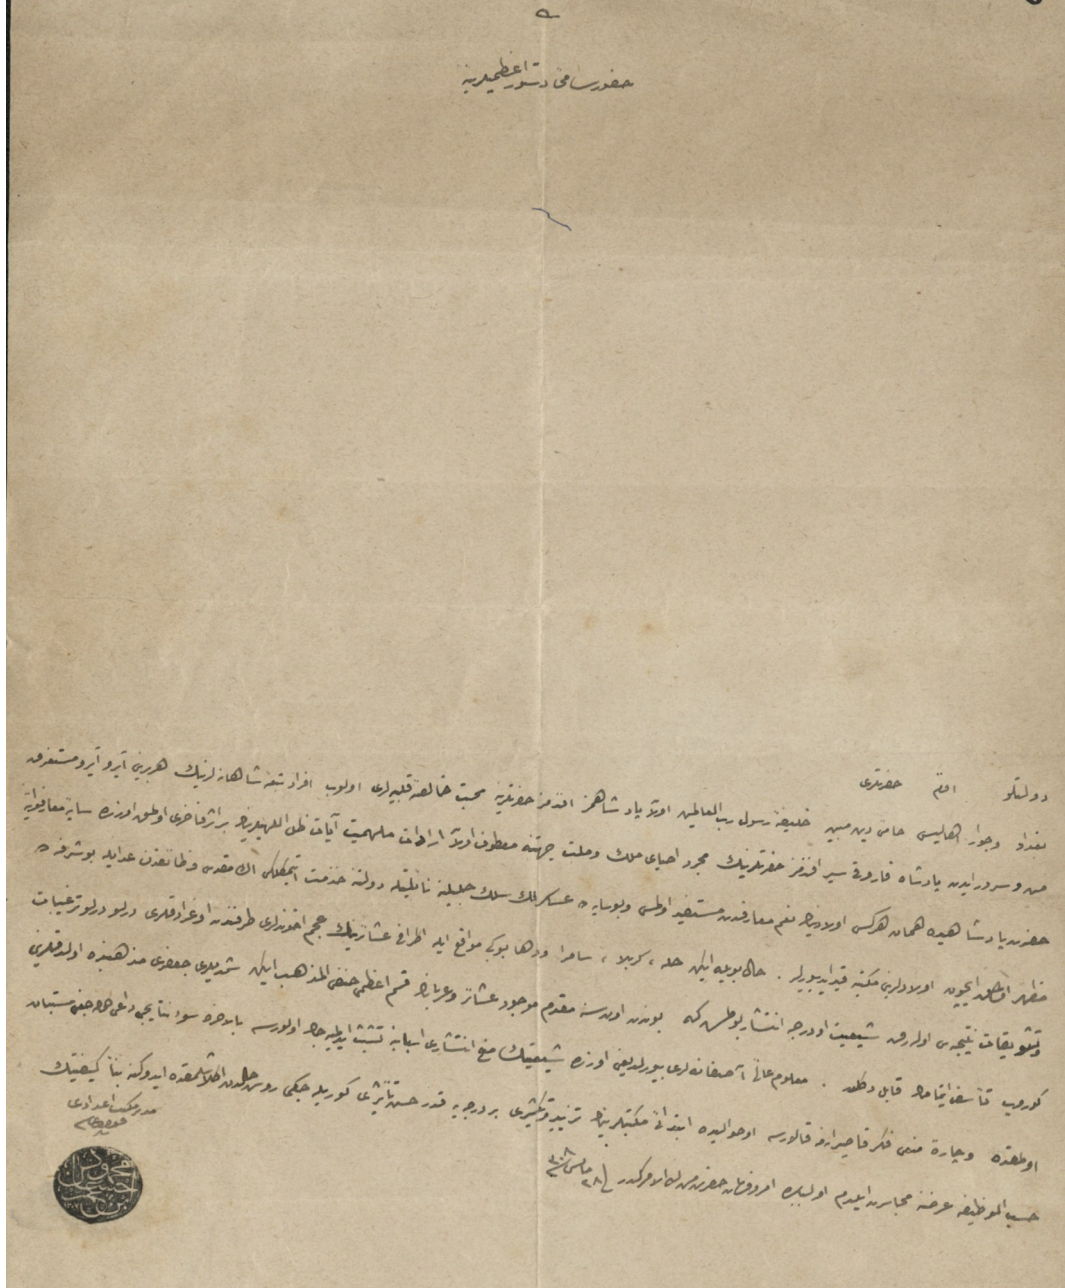 حضور سامئ دستور اعظمیلرینه
دولتلو افندم حضرتلری
بغداد و جوار اهالیسی حامئ دین مبین خلیفهٔ رسول رب العالمین اولان پادشاهمز افندمز حضرتلرینه محبت خالصهٔ قلبیه‌لری اولوب افراد تبعهٔ شاهانه‌لرینك هربرینی آیرو آیرو مستغرق
سرور ایدن پادشاه فاروقی سیر افندمز حضرتلرینك مجرد احیای ملك و ملت جهتنه معطوف اولان ارادات ملهمیت آیات ظل اللهیلرینك بر اثر فاخری اولمق اوزره سایهٔ معارفوایهٔ
حضرت پادشاهیده همان هركس اولادینك نعم معارفدن مستفید اولمسی و بو سایه‌ده عسكرلك سلك جلیلنه نائلیتله دولته خدمت ایتمكلكی اك مقدس وظائفدن عد ایله بو شرفه
مظهر اولمق ایچون اولادلرینی مكتبه قید ایدیورلر . حال بویله ایكن حله ، كربلا ، سامرا و دها بو كبی مواقع ایله اطرافی عشائرینك عجم اخوندلری طرفندن اوغرادقلری درلو درلو ترغیبات
و تشویقات نتیجه‌سی اوله‌رق شیعیت او درجه انتشار بولمش كه بوندن اون سنه مقدم موجود عشائر و عربانك قسم اعظمی حنفی المذهب ایكن شمدیلری جعفری مذهبنده اولدقلرینی
كوروب تأسف ایتمامك قابل دكلدر . معلوم عالئ آصفانه‌لری بیورلدیغی اوزره شیعیتك منع انتشاری اسبابنه تشبث ایدلمیه‌جك اولورسه بالاخره سوء نتایجی داعی اوله‌جغی مستبان
اولمقده و چارهٔ منعی فكر قاصرانه‌مه قالورسه او حوالیده ابتدائی مكتبلرینك تزیید و تكثیری بر درجه‌یه قدر حسن تأثیری كوریله‌جكی روش حالدن اكلاشلمقده ایدوكنه بناءً كیفیتك
حسب الوظیفه عرضنه مجاسرت ایلدم اولبابده امر و فرمان حضرت من له الامركدر فی ٢٨ مارس سنه ٣٠٨
مدیر مكتب اعدادی